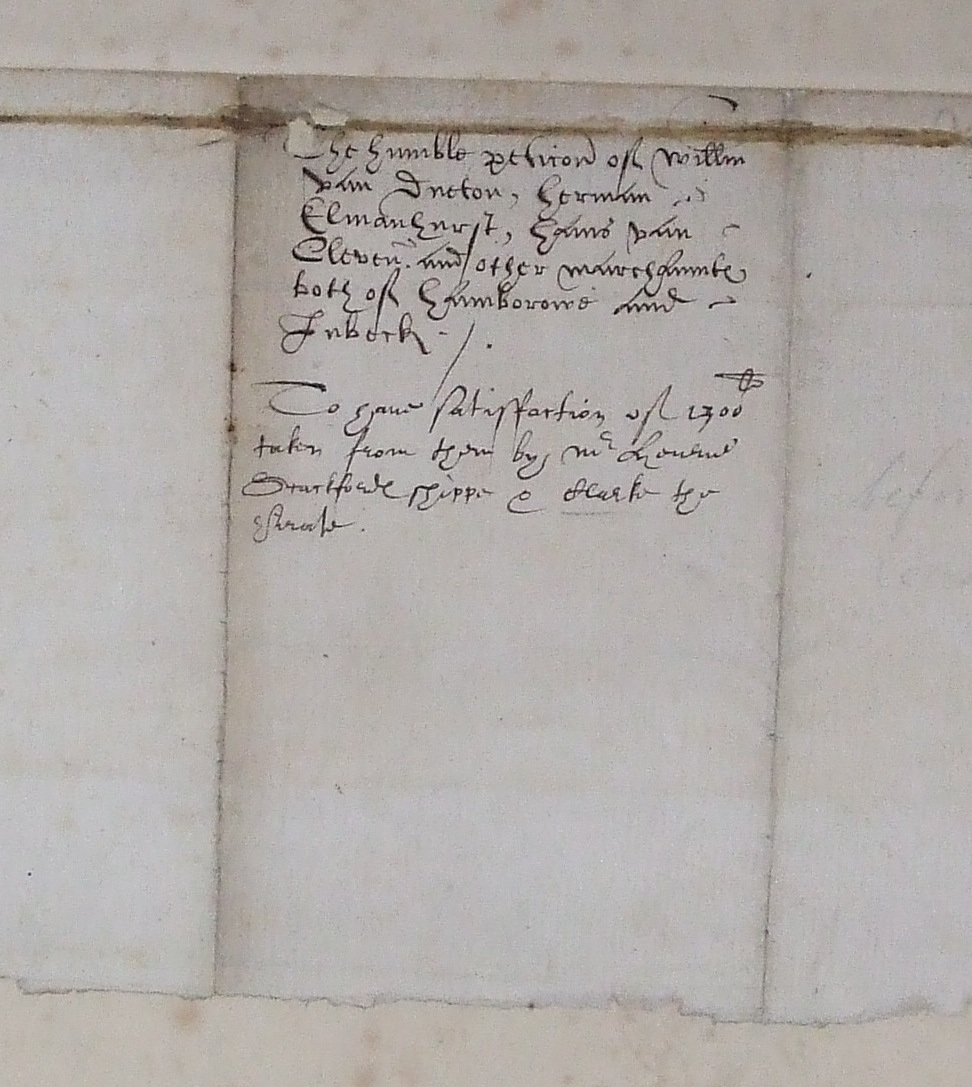 The humble peticion of Willm
van Ducton, Herman
Elmanhurst, Hans van
Cleven. and other marchaunte
both of Hamborowe and
Lubeck
li
To have satisfaction of 1300
taken from them by Mr
shippe & Clarke the
Pirate.